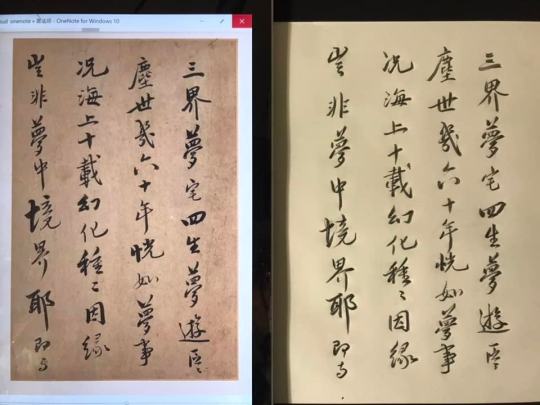 onenote
OneNote for Windows 10
三界夢宅四生夢遊區〻
塵世幾六十年恍如夢事
况海上十載幻化種〻因緣
豈非夢中境界耶即与
三界夢宅四生夢遊區〻
塵世幾六十年恍如夢事
况海上十載幻化種〻因緣
豈非夢中境界耶即与